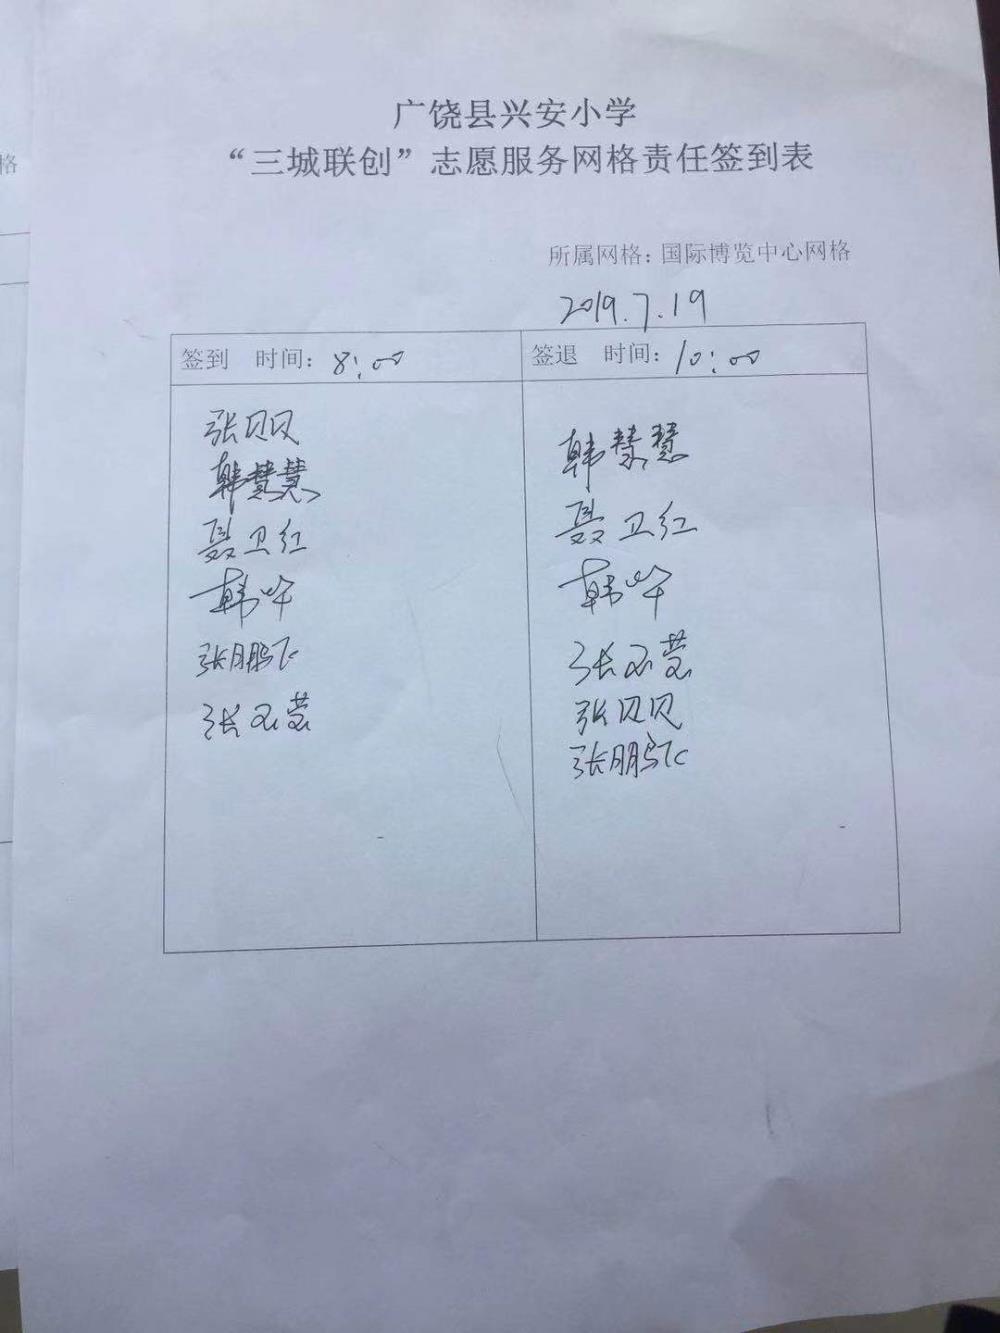 格
广饶县兴安小学
“三城联创”志愿服务网格责任签到表
所属网格：国际博览中心网格
2019.7.19
签到 时间：8:00
签退 时间：10:00
张贝贝
韩慧慧
聂卫红
韩吟
张鹏飞
张玉莹
韩慧慧
聂卫红
韩吟
张玉莹
张贝贝
张鹏飞